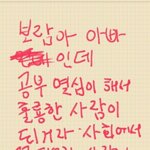 보람아 아빠
인데
공부 열심이 해서
훌륭한 사람이
되거라 사회에서